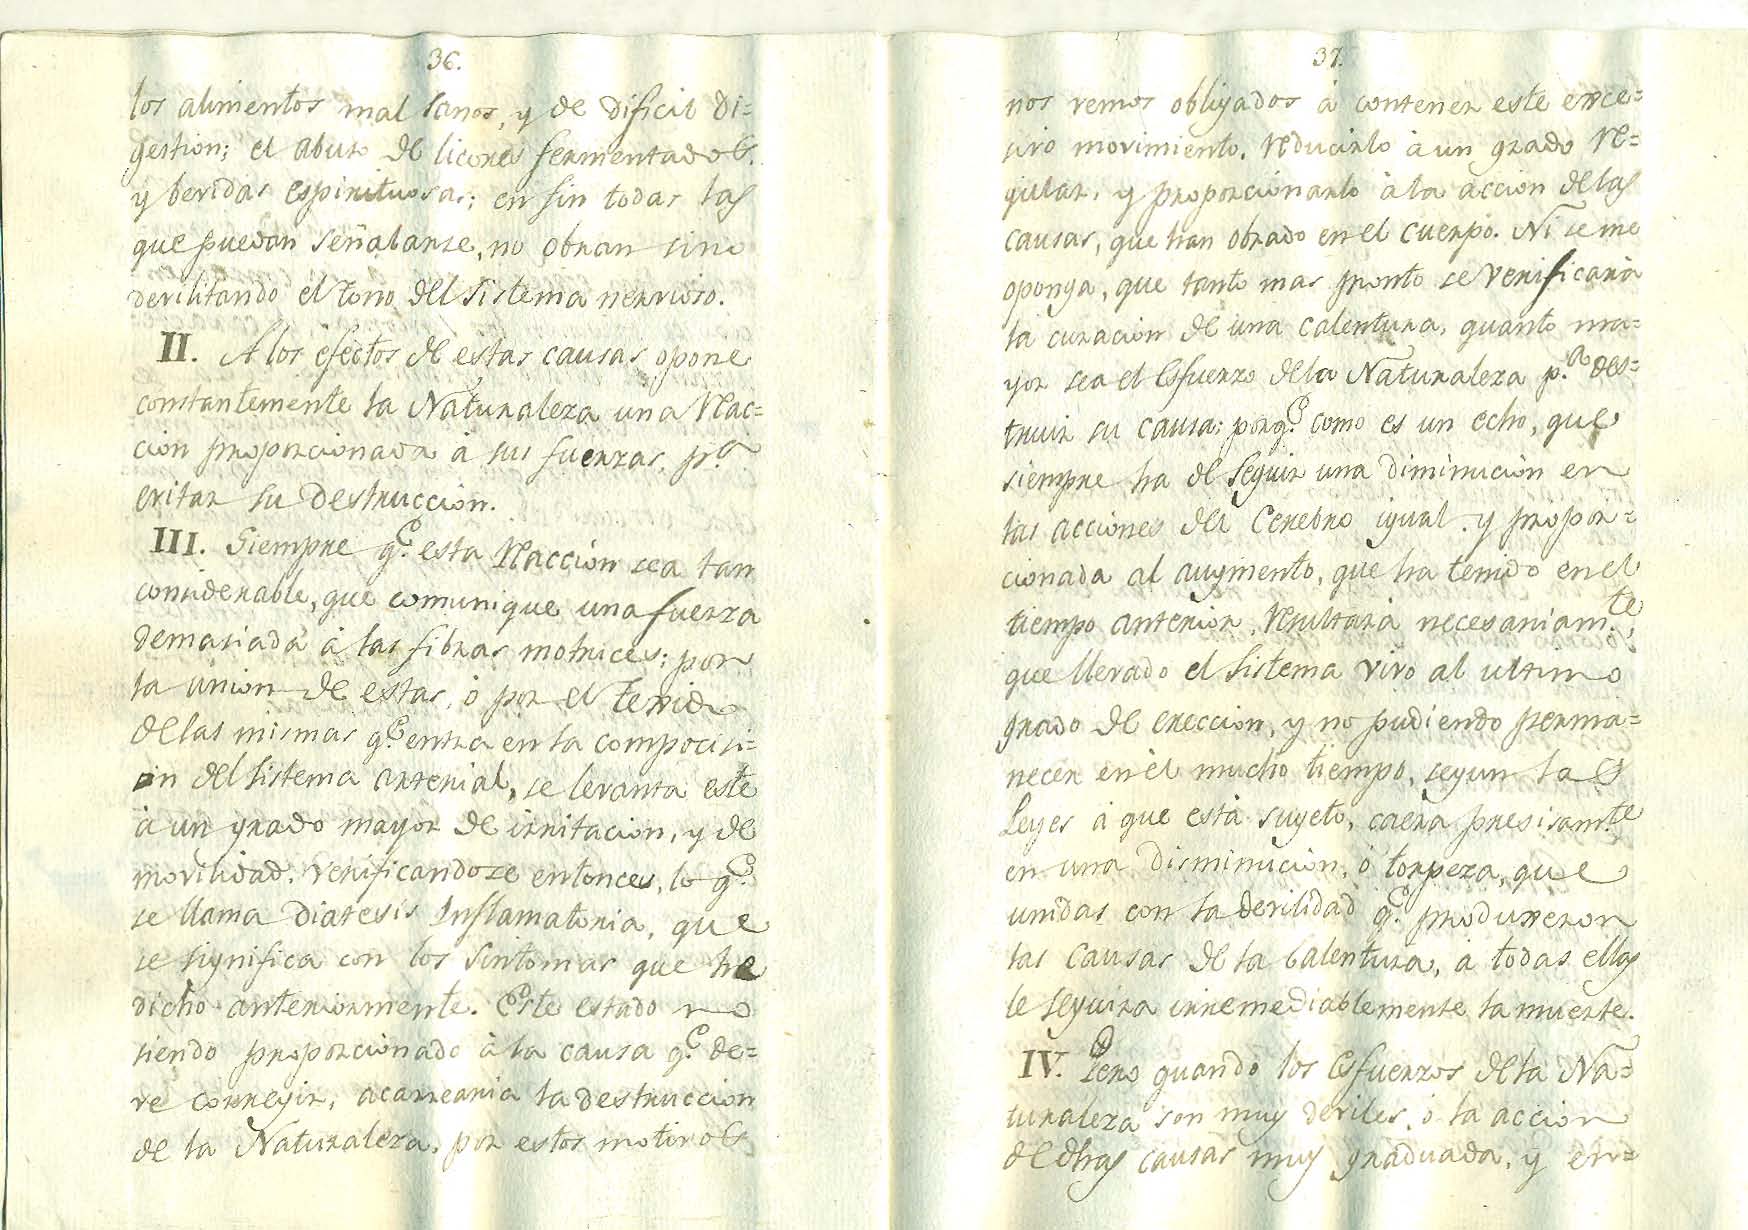 36.
los alimentos mal sanos, y de dificil di=
gestion; el abuso de licores fermentados.
y bevidas espirituosas; en fin todas las
que puedan señalarse, no obran sino
devilitando el tono del Sistema nervioso.
II. A los efectos de estas causas opone
constantemente la Naturaleza una Reac=
cion proporcionada à sus fuerzas, p.ª
evitar su destruccion.
III. Siempre q.e esta Reacción sea tan
considerable, que comunique una fuerza
demasiada à las fibras motrices; por
la union de estas, ó por el texido
de las mismas q.e entra en la composisi=
on del sistema arterial, se levanta este
à un grado mayor de irritacion, y de
movilidad. verificandoze entonces, lo q.e
se llama Diatesis Inflamatoria, que
se significa con los sintomas que he
dicho anteriormente. Este estado no
siendo proporcionado à la causa q.e de=
ve corregir, acarrearia la destruccion
de la Naturaleza. por estos motivos
37.
nos vemos obligados à contener este exce=
sivo movimiento, reducirlo à un grado re=
gular, y proporcionarlo à la accion de las
causas, que han obrado en el cuerpo. Ni se me
oponga, que tanto mas pronto se verificaria
la curacion de una calentura, quanto ma=
yor sea el Esfuerzo de la Naturaleza p.ª des=
truir su causa: porq.e como es un echo, que
siempre ha de seguir una diminucion en
las acciones del Cerebro igual y propor=
cionada al augmento, que ha tenido en el
tiempo anterior, Resultará necesariam.te,
que llevado el sistema vivo al ultimo
grado de ereccion, y no pudiendo perma=
necer en él mucho tiempo, segun las
Leyes à que està sugeto, caera presisam.te
en una disminucion, ò torpeza, que
unidas con la devilidad q.e produxeron
las causas de la Calentura, à todas ellas
le seguira irremediablemente la muerte.
IV. Pero quando los Esfuerzos de la Na=
turaleza son muy deviles, ò la accion
de dhas causas muy graduada, y en=